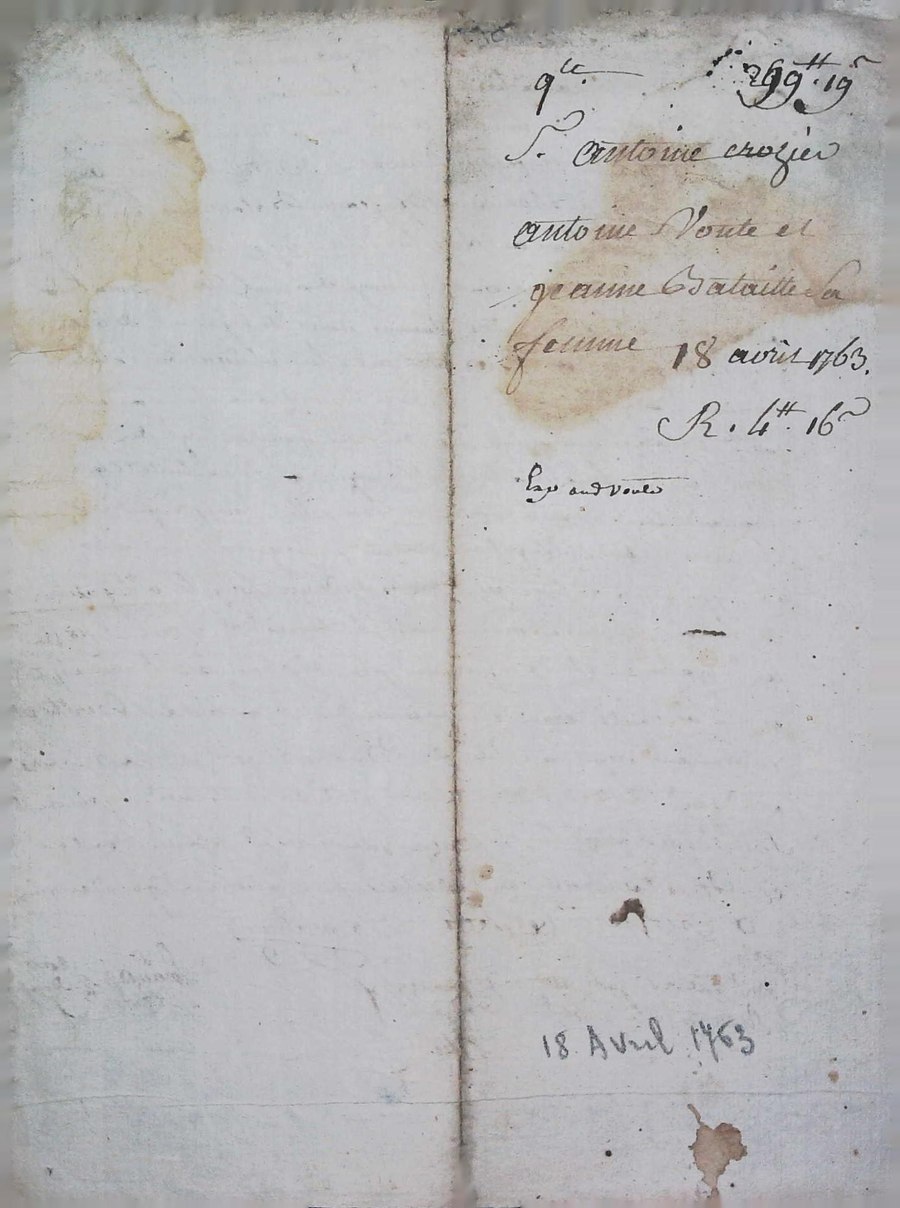 qce 299₶ 19s
S. antoine crozier
antoine Voute et
jeanne Bataille Sa
femme 18 avril 1763.
R. 4₶ 16s
Exp
18 Avril 1763